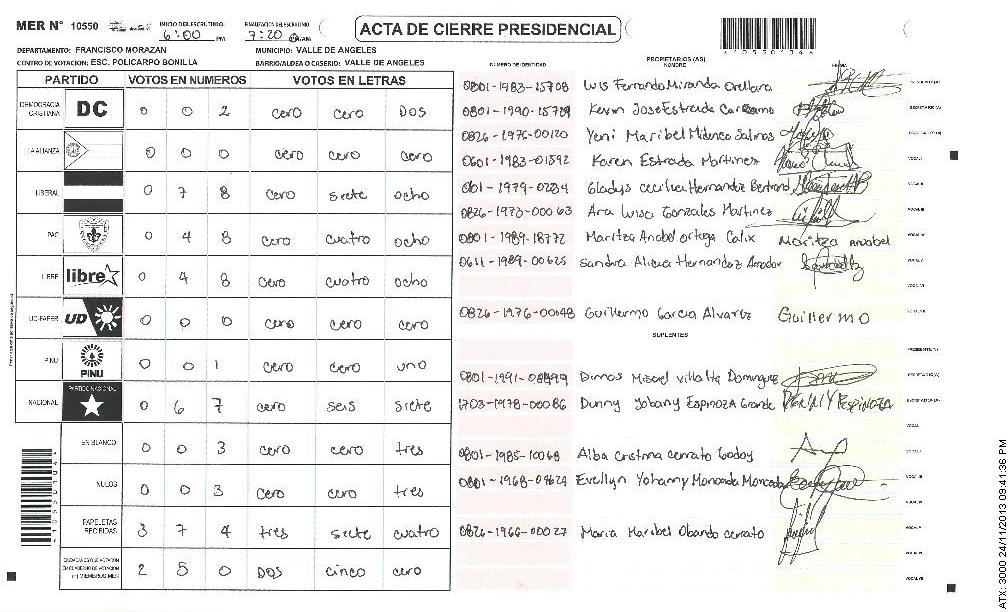 MER N° 10550 INICIO DEL ESCRUTINIO: 6:00 PM FINALIZACION DEL ESCRUTINIO 7:20 PM/AM ACTA DE CIERRE PRESIDENCIAL
DEPARTAMENTO: FRANCISCO MORAZAN MUNICIPIO: VALLE DE ANGELES
CENTRO DE VOTACION: ESC. POLICARPO BONILLA BARRIO/ALDEA O CASERIO: VALLE DE ANGELES
PARTIDO VOTOS EN NUMEROS VOTOS EN LETRAS
DEMOCRACIA CRISTIANA DC 0 0 2 cero cero DOS
LA ALIANZA 0 0 0 cero cero cero
LIBERAL 0 7 8 cero siete ocho
PAC 0 4 8 cero cuatro ocho
LIBRE libre 0 4 8 cero cuatro ocho
UD-FAPER UD 0 0 0 cero cero cero
PINU PINU 0 0 1 cero cero uno
NACIONAL PARTIDO NACIONAL 0 6 7 cero seis siete
EN BLANCO 0 0 3 cero cero tres
NULOS 0 0 3 cero cero tres
PAPELETAS RECIBIDAS 3 7 4 tres siete cuatro
CIUDADANOS QUE VOTARON EN CUADERNO DE VOTACION (+) MIEMBROS MER 2 5 0 DOS cinco cero
NUMERO DE IDENTIDAD PROPIETARIOS (AS) NOMBRE FIRMA
0801-1983-15708 Luis Fernando Miranda Orellana PRESIDENTE (A)
0801-1990-15729 Kevin Jose Estrada SECRETARIO (A)
0826-1976-00120 Yeni Maribel
0601-1983-01592 Karen Estrada Martinez VOCAL I
Gladys Cecilia Hernandez VOCAL II
0826-1973-00063 Ana Luisa Gonzales Martinez VOCAL III
0801-1989-18772 Maritza Anabel Ortega Calix Maritza Anabel VOCAL IV
0611-1989-00625 Sandra Alicia Hernandez Amador VOCAL V
VOCAL VI
0826-1976-00048 Guillermo Garcia Alvarez Guillermo VOCAL VII
SUPLENTES
PRESIDENTE (A)
0801-1991- Dimas Misael Villalta Dominguez SECRETARIO (A)
1703-1978-00086 Danny Yobany Espinoza Grande
VOCAL I
0801-1985-10068 Alba Cristina Cerrato Godoy VOCAL II
Evellyn Yohanny Moncada Moncada VOCAL III
VOCAL IV
0826-1966-00027 Maria Maribel Obando Cerrato VOCAL V
VOCAL VI
VOCAL VII
ATX: 3000 24/11/2013 09:41:36 PM